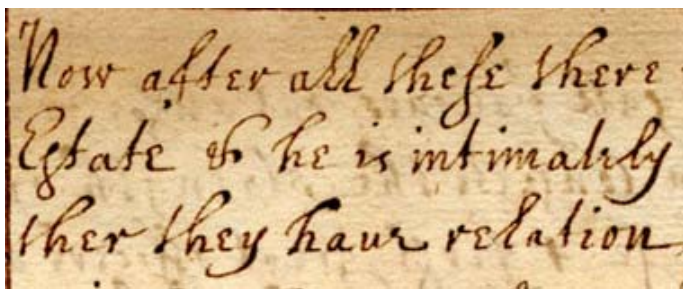 Now after all these there
Estate & he is intimately
ther they have relation